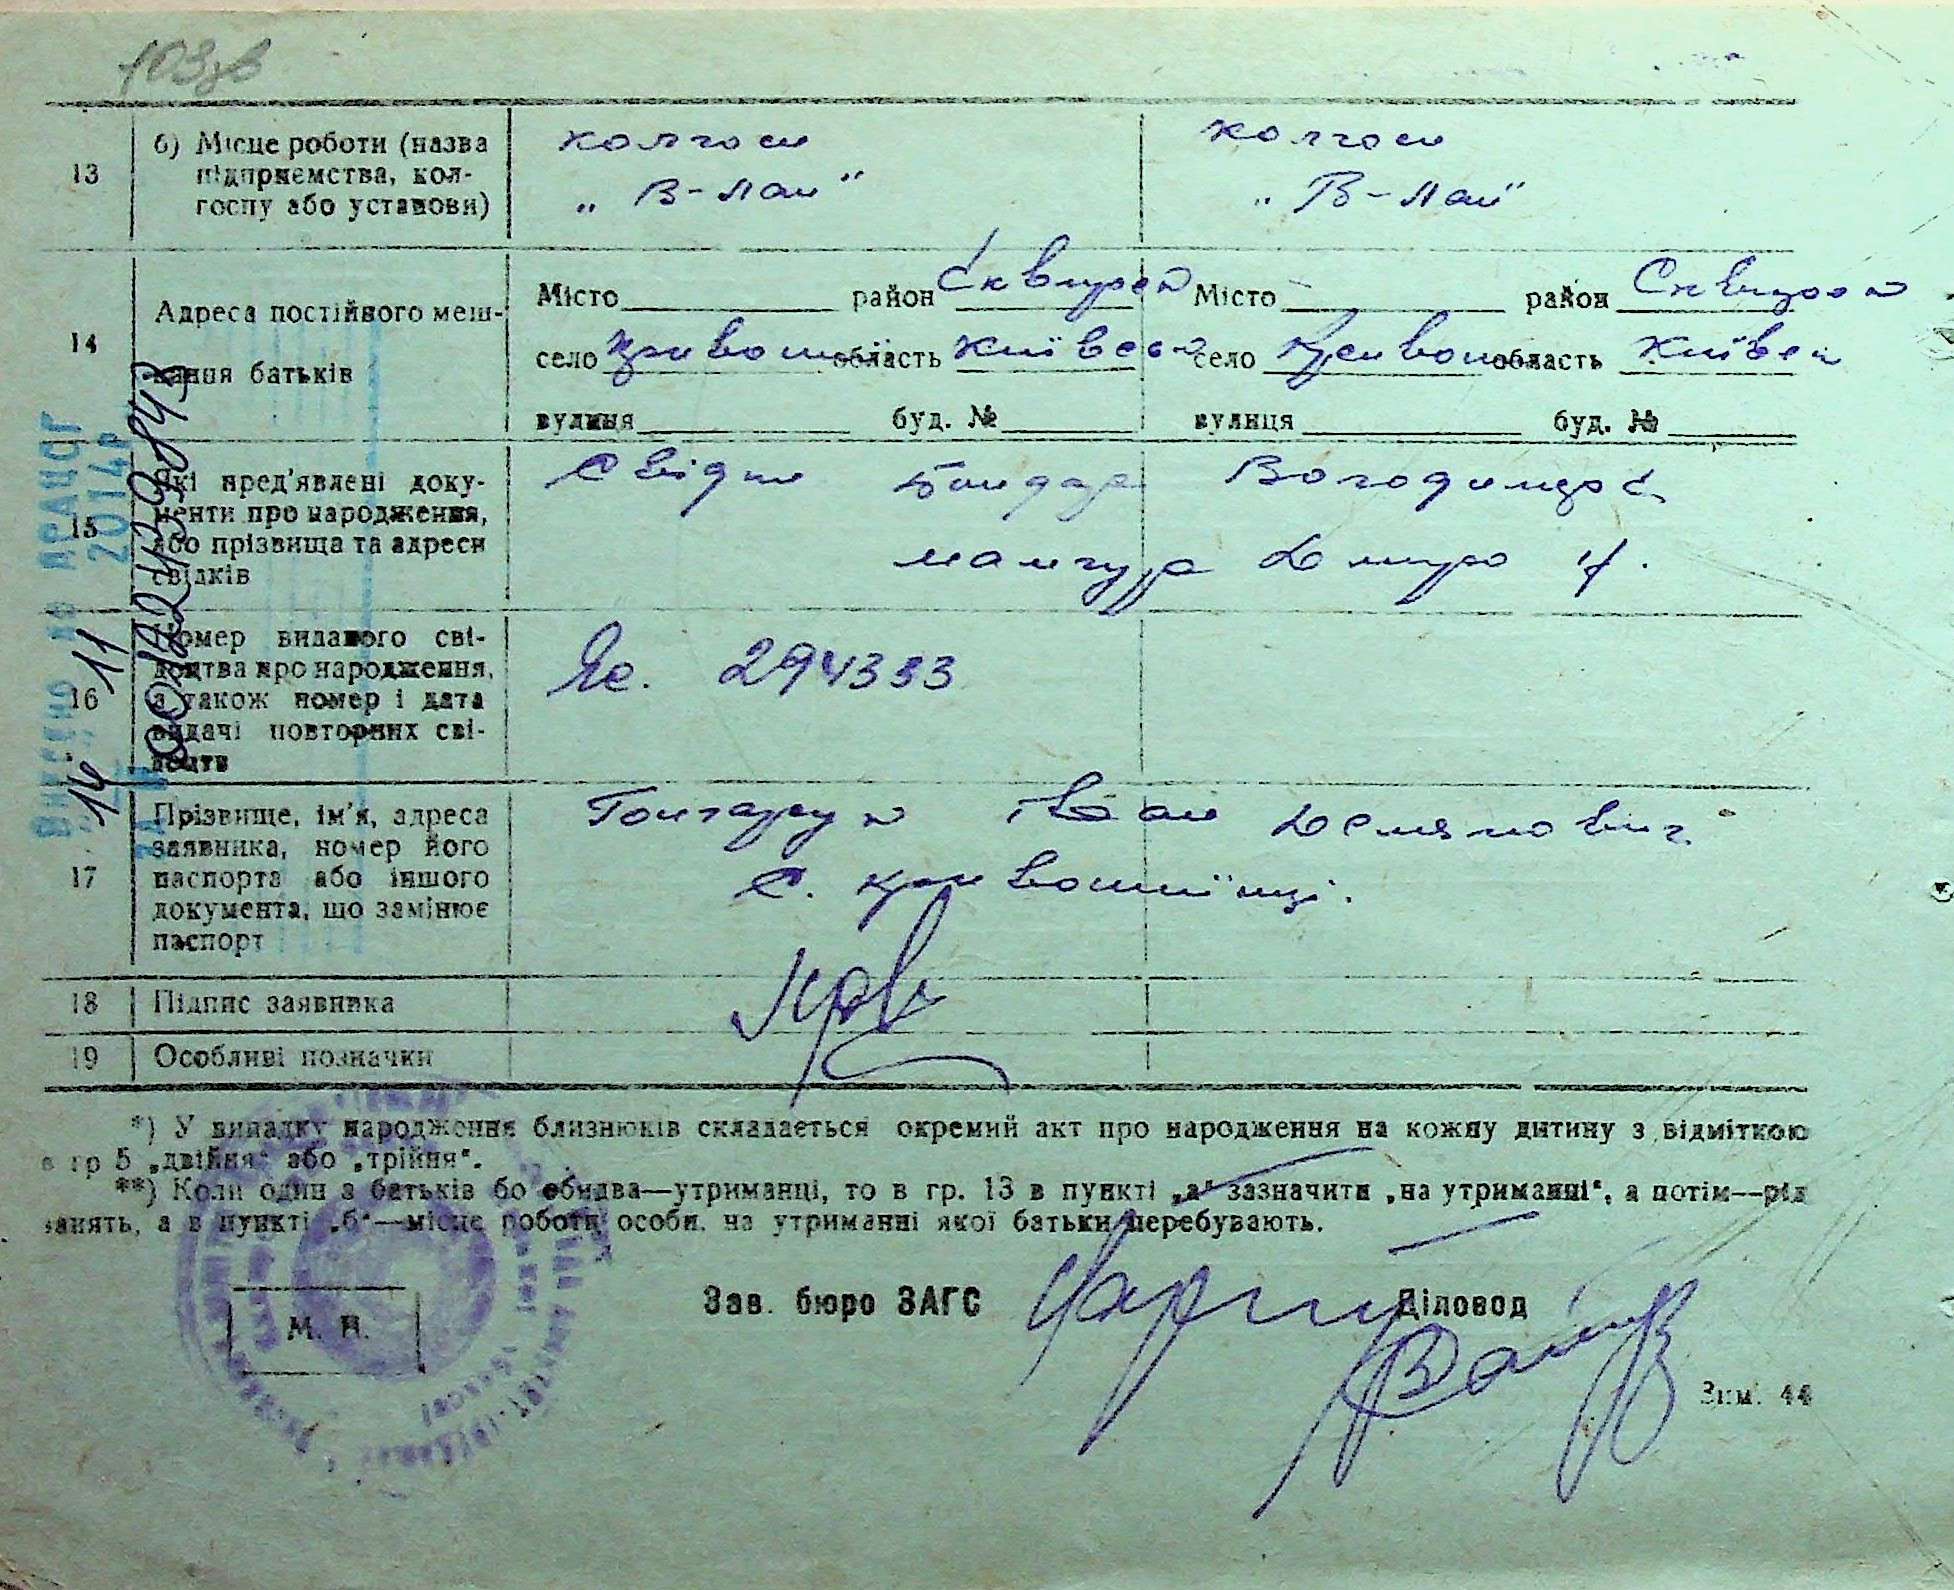 103зв
13
б) Місце роботи (назва підприємства, колгоспу або установи)
колгосп
„ В-Лан“
колгосп
„ В-Лан“
14
Адреса постійного мешкання батьків
Місто район Сквирськ
село область Київськ
вулиця буд. №
Місто район Сквирськ
село область Київськ
вулиця буд. №
15
Які пред'явлені документи про народження, або прізвища та адреси свідків
Свідки Бондар
16
Номер виданого свідоцтва про народження, а також номер і дата видачі повторних свідоцтв
294333
17
Прізвище, ім'я, адреса заявника, номер його паспорта або іншого документа, що замінює паспорт
Гончарук Іван Демянович
с. Кривошиїнці.
18
Підпис заявника
19
Особливі позначки
*) У випадку народження близнюків складається окремий акт про народження на кожну дитину з відміткою
в гр 5 „двійня“ або „трійня“.
**) Коли один з батьків бо обидва—утриманці, то в гр. 13 в пункті „а“ зазначити „на утриманні“, а потім—рід
занять, а в пункті „б“—місце роботи особи, на утриманні якої батьки перебувають.
М. П.
Зав. бюро ЗАГС
Діловод
Зим. 44
Внесено до ДРАЦСГ
14 11 2014р
за № 00102439843